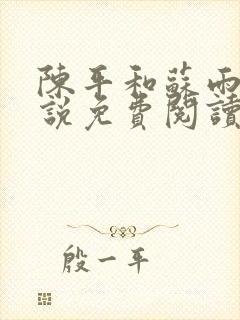 陳平和蘇雨
說免費閱讀
殷一平